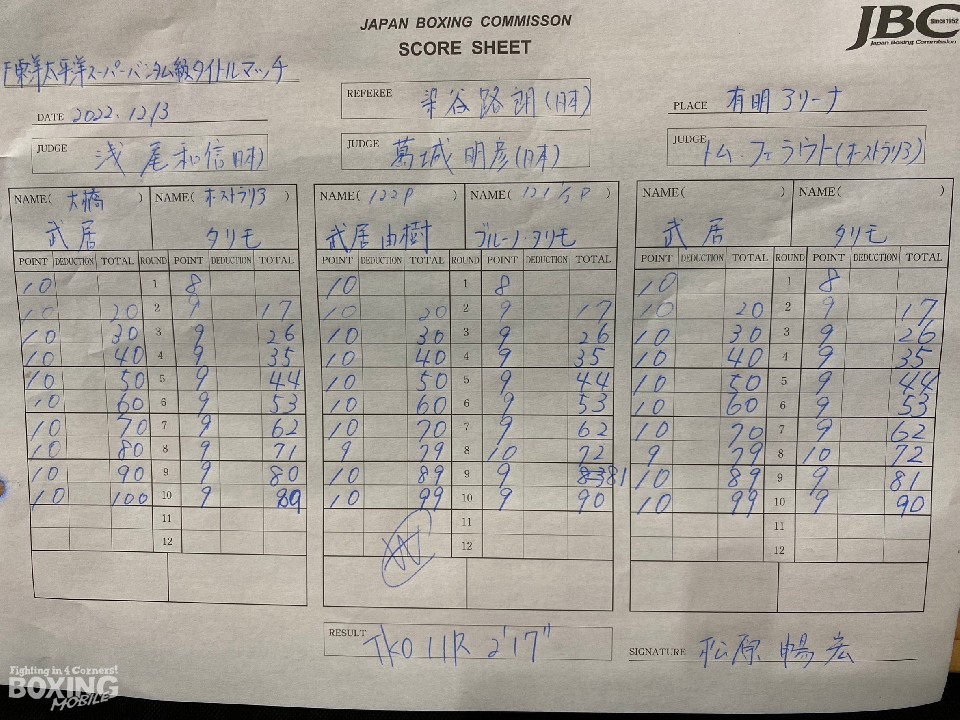 JAPAN BOXING COMMISSON
SCORE SHEET
JBC Since 1952
Japan Boxing Commission
東洋太平洋スーパーバンタム級タイトルマッチ
DATE 2022.12/3
REFEREE 染谷路朗(日本)
PLACE 有明アリーナ
JUDGE 浅尾和信(日本)
JUDGE 葛城明彦(日本)
JUDGE トム.フェラウト(オーストラリア)
NAME( 大橋 ) NAME( オーストラリア ) NAME( 122P ) NAME( 121 1/2 P ) NAME( ) NAME( )
武居 タリモ 武居由樹 ブルーノ・タリモ 武居 タリモ
POINT DEDUCTION TOTAL ROUND POINT DEDUCTION TOTAL POINT DEDUCTION TOTAL ROUND POINT DEDUCTION TOTAL POINT DEDUCTION TOTAL ROUND POINT DEDUCTION TOTAL
10 1 8 10 1 8 10 1 8
10 20 2 9 17 10 20 2 9 17 10 20 2 9 17
10 30 3 9 26 10 30 3 9 26 10 30 3 9 26
10 40 4 9 35 10 40 4 9 35 10 40 4 9 35
10 50 5 9 44 10 50 5 9 44 10 50 5 9 44
10 60 6 9 53 10 60 6 9 53 10 60 6 9 53
10 70 7 9 62 10 70 7 9 62 10 70 7 9 62
10 80 8 9 71 9 79 8 10 72 9 79 8 10 72
10 90 9 9 80 10 89 9 9 81 10 89 9 9 81
10 100 10 9 89 10 99 10 9 90 10 99 10 9 90
11 11 11
12 12 12
RESULT TKO 11R 2'17"
SIGNATURE 松原暢宏
Fighting in 4 Corners!
BOXING
MOBILE